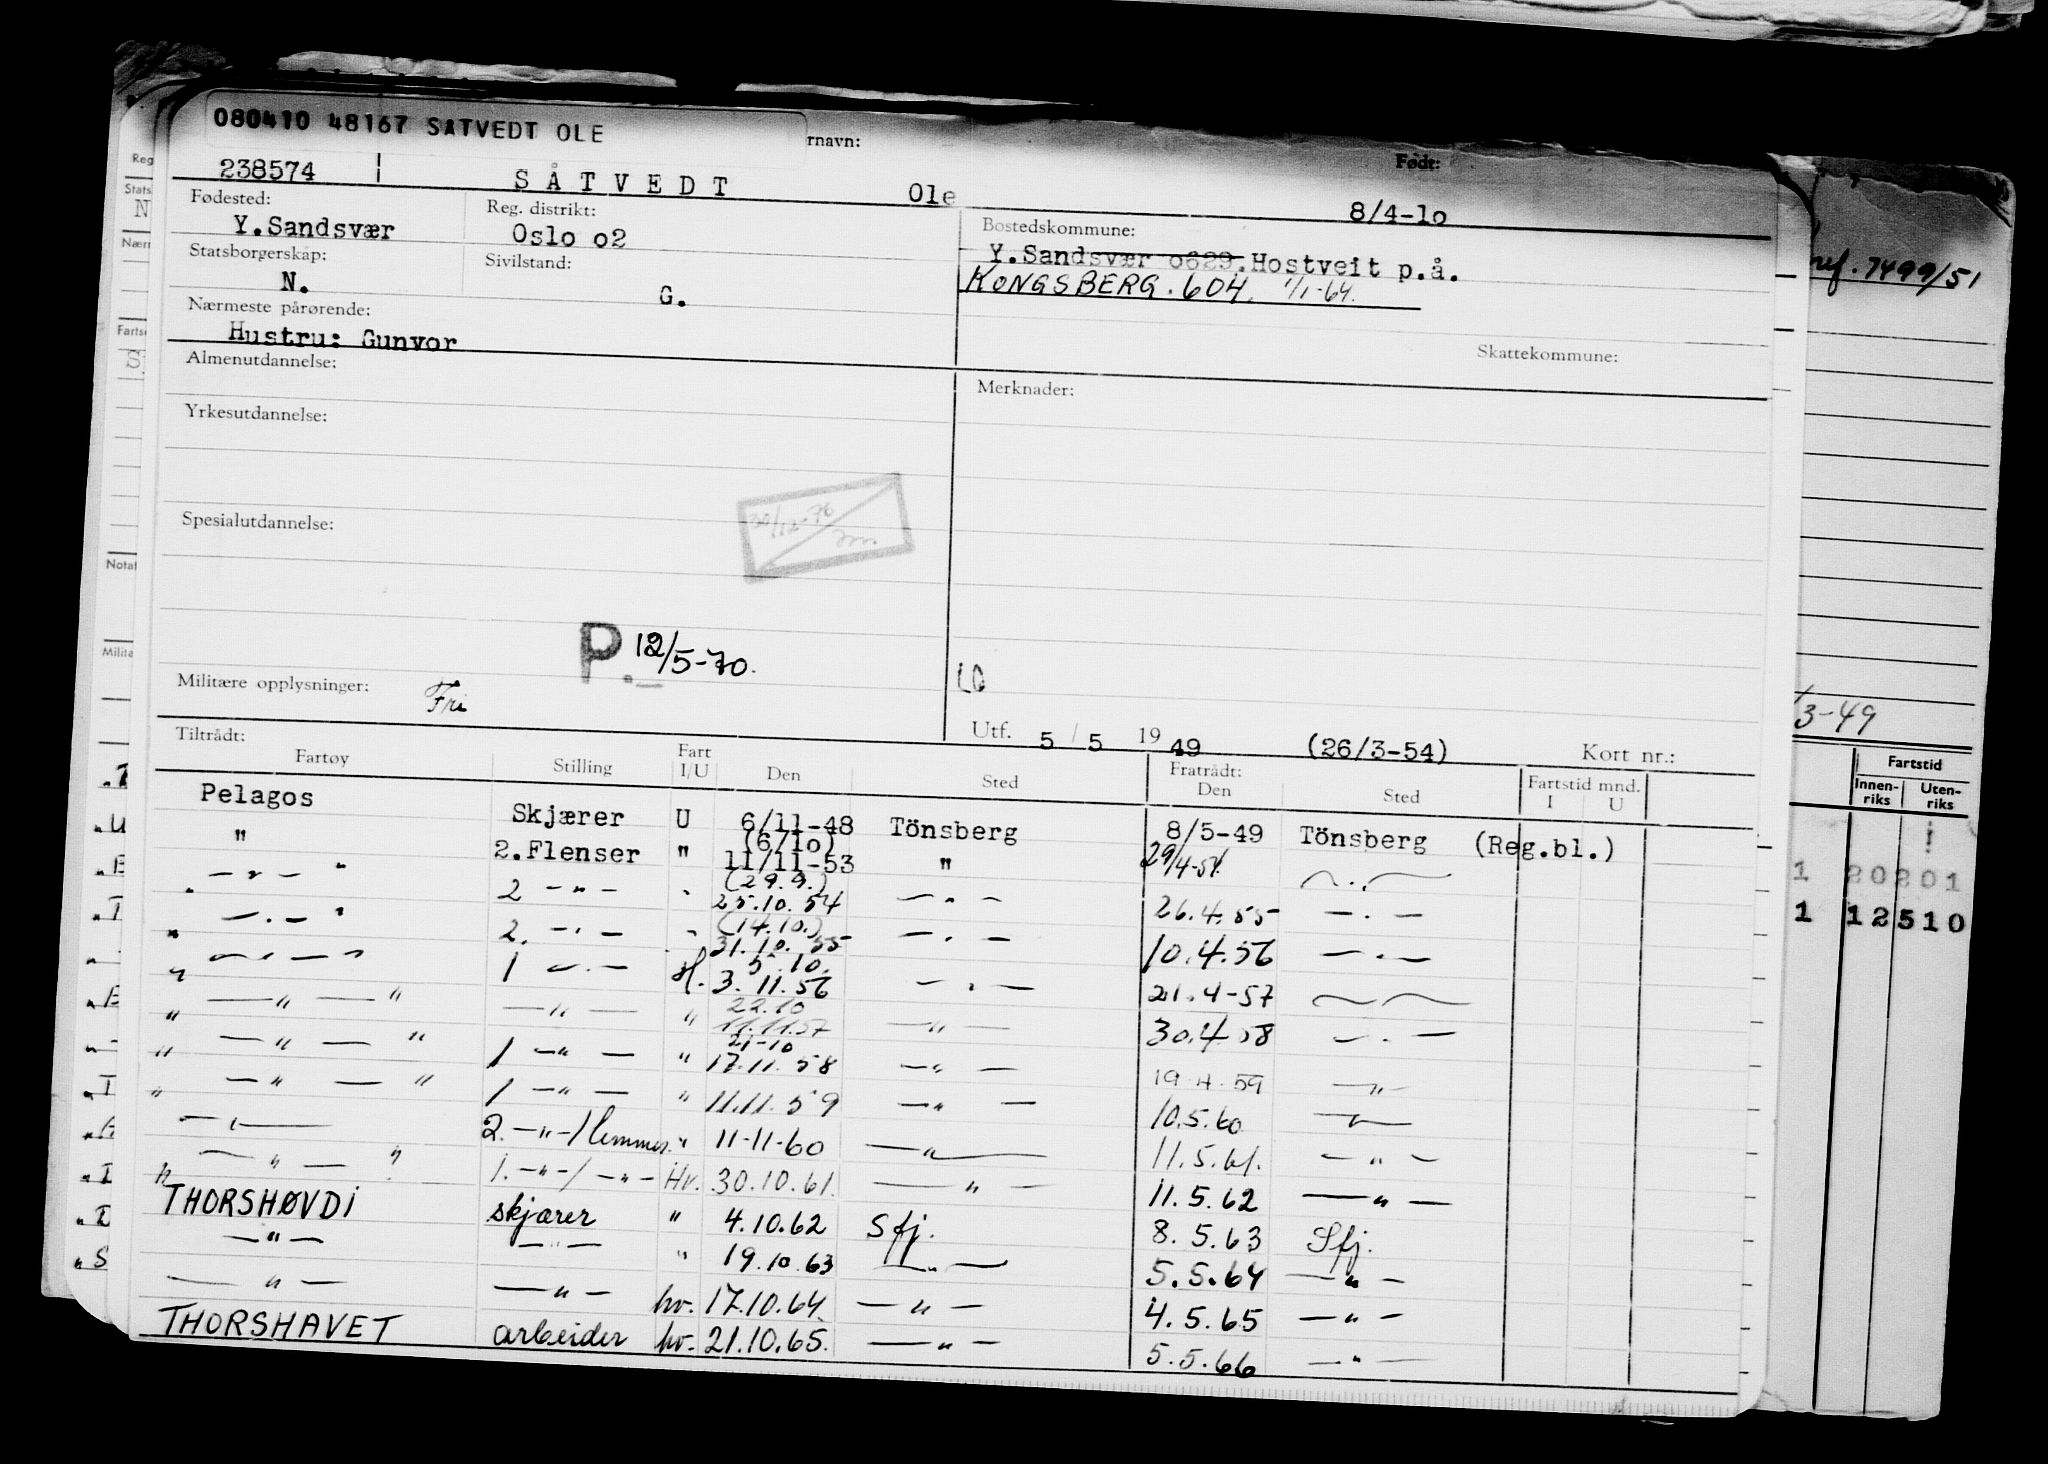 080410 48167 SATVEDT OLE
rnavn: Født:
238574 SÅTVEDT Ole 8/4-1o
Fødested: Reg. distrikt: Bostedskommune:
Y.Sandsvær Oslo o2 Y.Sandsvær o629.Hostveit p.å.
Statsborgerskap: Sivilstand: KONGSBERG. 604. 1/1-64.
N. G.
Nærmeste pårørende:
Hustru: Gunvor
Skattekommune:
Almenutdannelse: Merknader:
Yrkesutdannelse:
30/12-76
Spesialutdannelse:
P. 12/5-70.
Militære opplysninger: Fri
Utf. 5/5 1949 (26/3-54) Kort nr.:
Tiltrådt: Fratrådt:
Fartøy Stilling Fart I/U Den Sted Den Sted Fartstid mnd. I U
Pelagos Skjærer U 6/11-48 Tönsberg 8/5-49 Tönsberg (Reg.bl.)
" 2.Flenser " (6/1o) 11/11-53 " 29/4-54.
" —"— " 2 —"— " (29.9.) 25.10.54 —"— 26.4.55 —"—
" —"— " 2. —"— " (14.10.) 31.10.55 —"— 10.4.56 —"—
" —"— " 1 —"— H. 5.10. 3.11.56 —"— 21.4-57
" —"— " —"— " 22.10 11.11.57 —"— 30.4.58 —"—
" —"— " 1 —"— " 21-10 17.11.58 —"— 19.4.59 —"—
" —"— " 1 —"— " 11.11.59 —"— 10.5.60 —"—
—"— 2. —"—/ " 11-11-60 —"— 11.5.61. —"—
" —"— " 1. —"—/—"— Hv. 30.10.61. —"— 11.5.62 —"—
THORSHØVDI skjærer " 4.10.62 Sfj. 8.5.63 Sfj.
—"— —"— " 19.10.63 —"— 5.5.64 —"—
—"— —"— hv. 17.10.64. —"— 4.5.65 —"—
THORSHAVET arbeider hv. 21.10.65. —"— 5.5.66 —"—
Reg
Stats
N
Nærr
Fartse
S
Notat
Milita
ref. 7499/51
/3-49
Fartstid
Innen-riks Uten-riks
1 20201
1 12510